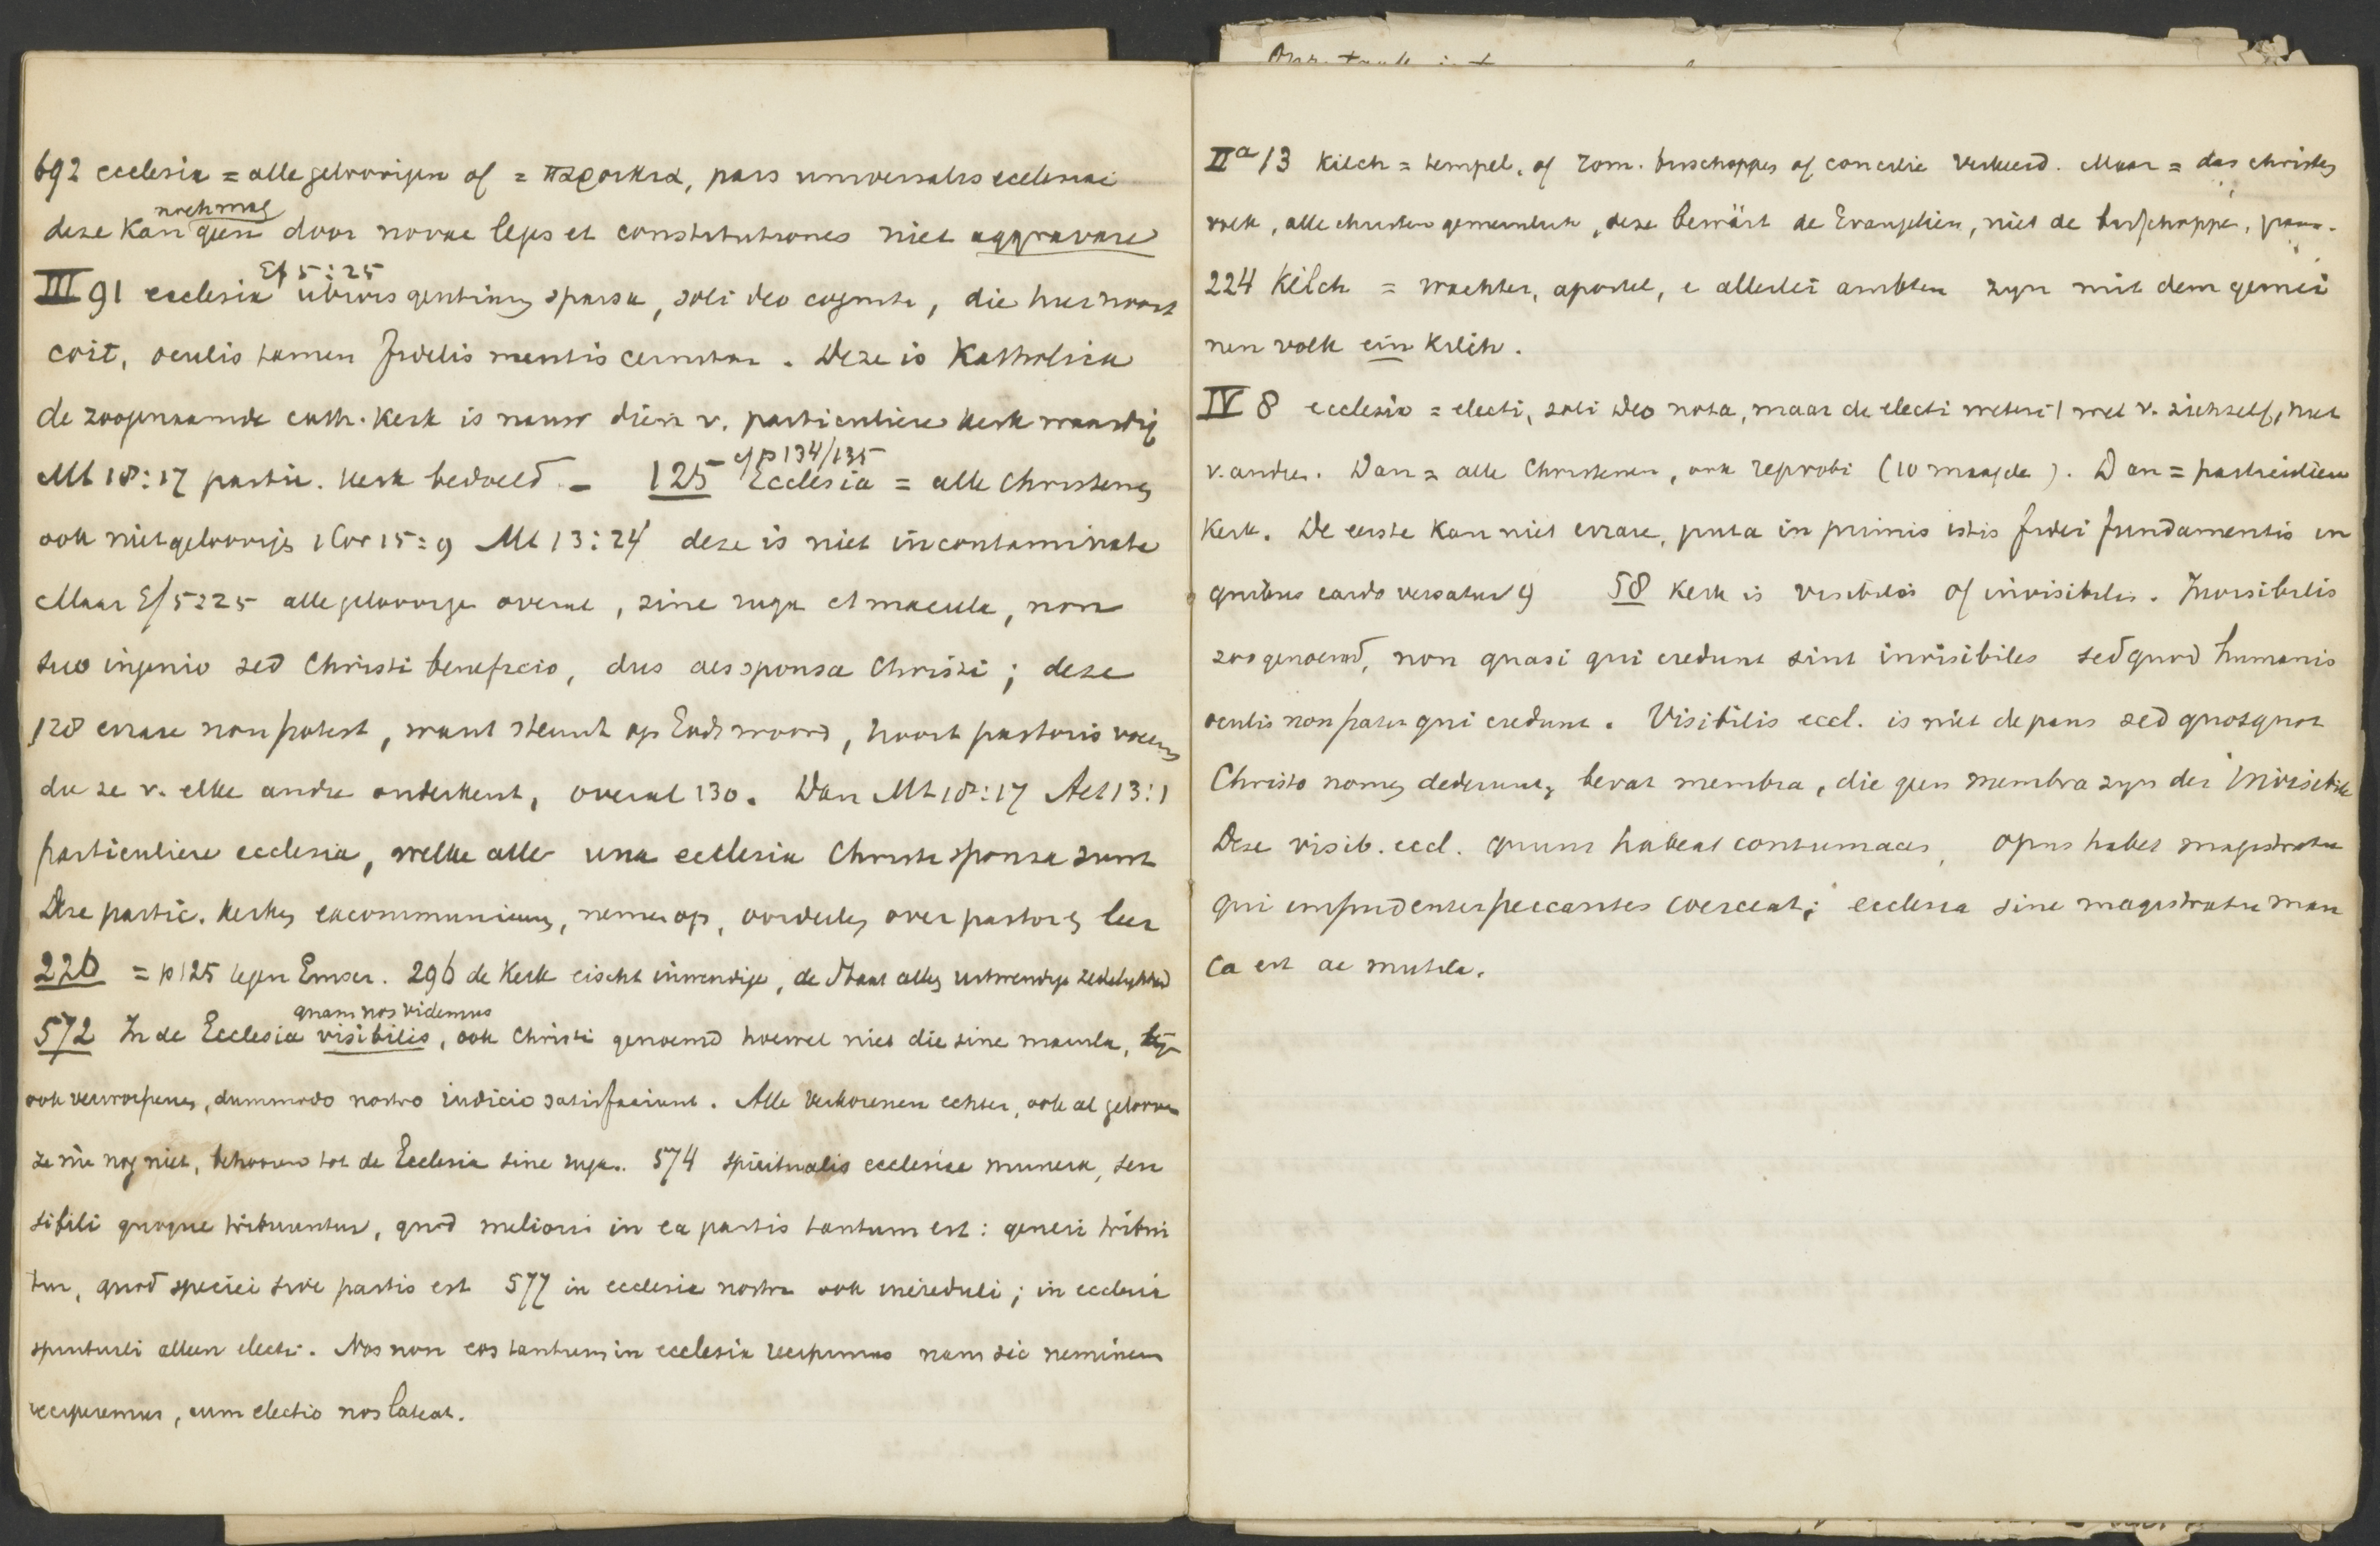 692 ecclesia = alle geloovigen of = παροικια, pars universalis ecclesiae
noch mag
deze kan geen door novae leges et constitutiones niet aggravare
Ef 5:25
III 91 ecclesia ubivis gentium sparsa, soli deo cognita, die hier nooit
coit, oculis tamen fidelis mentis cernitur. Deze is Katholica
de zoogenaamde cath. kerk is nauw dien v. particuliere kerk waardig
Mt 18:17 partic. kerk bedoeld. –
cf p 134/135
125 Ecclesia = alle Christenen
ook nietgeloovige 1 Cor 15:9 Mt 13:24 deze is niet incontaminata
Maar Ef 5:25 alle geloovige overal, sine ruga et macula, non
suo ingenio sed Christi beneficio, dus als sponsa Christi; deze
128 errare non potest, want steunt op Gods woord, hoort pastoris vocem
die ze v. elke andre onderkent, overal 130. Dan Mt 18:17 Act 13:1
particuliere ecclesia, welke alle una ecclesia Christi sponsa sunt
Deze partic. kerken excommuniceeren, nemen op, oordeelen over pastor en leer
226 = p 125 tegen Emser. 296 de Kerk eischt inwendige, de Staat alleen uitwendige zedelijkheid
quam nos videmus
572 In de Ecclesia visibilis, ook Christi genoemd hoewel niet die sine macula, zijn
ook verworpenen, dummodo nostro iudicio satisfaciunt. Alle verkorenen echter, ook al gelooven
ze nu nog niet, behooren tot de Ecclesia sine ruga. 574 spiritualis ecclesiae munera, sen
sibili quoque tribuuntur, quod melioris in ea partis tantum est: generi tribui
tur, quod speciei sive partis est 577 in ecclesia nostra ook increduli; in ecclesia
spirituali alleen electi. Nos non eos tantum in ecclesia recipimus nam sic neminem
reciperemus, cum electio nos lateat.
IIa 13 Kilch = tempel, of rom. bisschoppen of concilie verkeerd. Maar = das christen
volk, alle christen gemeinlich, deze bewärt de Evangelien, niet de bisschoppen, paus.
224 Kilch = wachter, apostel, e allerlei ambten zyn mit dem gemei
nen volk ein Kilch.
IV 8 ecclesia = electi, soli Deo nota, maar de electi weten 't wel v. zichzelf, niet
v. andre. Dan = alle Christenen, ook reprobi (10 maagden). Dan = particuliere
Kerk. De eerste kan niet errare, puta in primis istis fidei fundamentis in
quibus cardo versatur 9 58 Kerk is visibilis of invisibilis. Invisibilis
zoo genoemd, non quasi qui credunt sint invisibiles sed quod humanis
oculis non patet qui credunt. Visibilis eccl. is niet de paus sed quotquot
Christo nomen dederunt, bevat membra, die geen membra zyn der invisibilis
Deze visib. eccl. quum habeat contumaces, opus habet magistratu
qui impudenter peccantes coerceat; ecclesia sine magistratu man
ca est ac mutila.